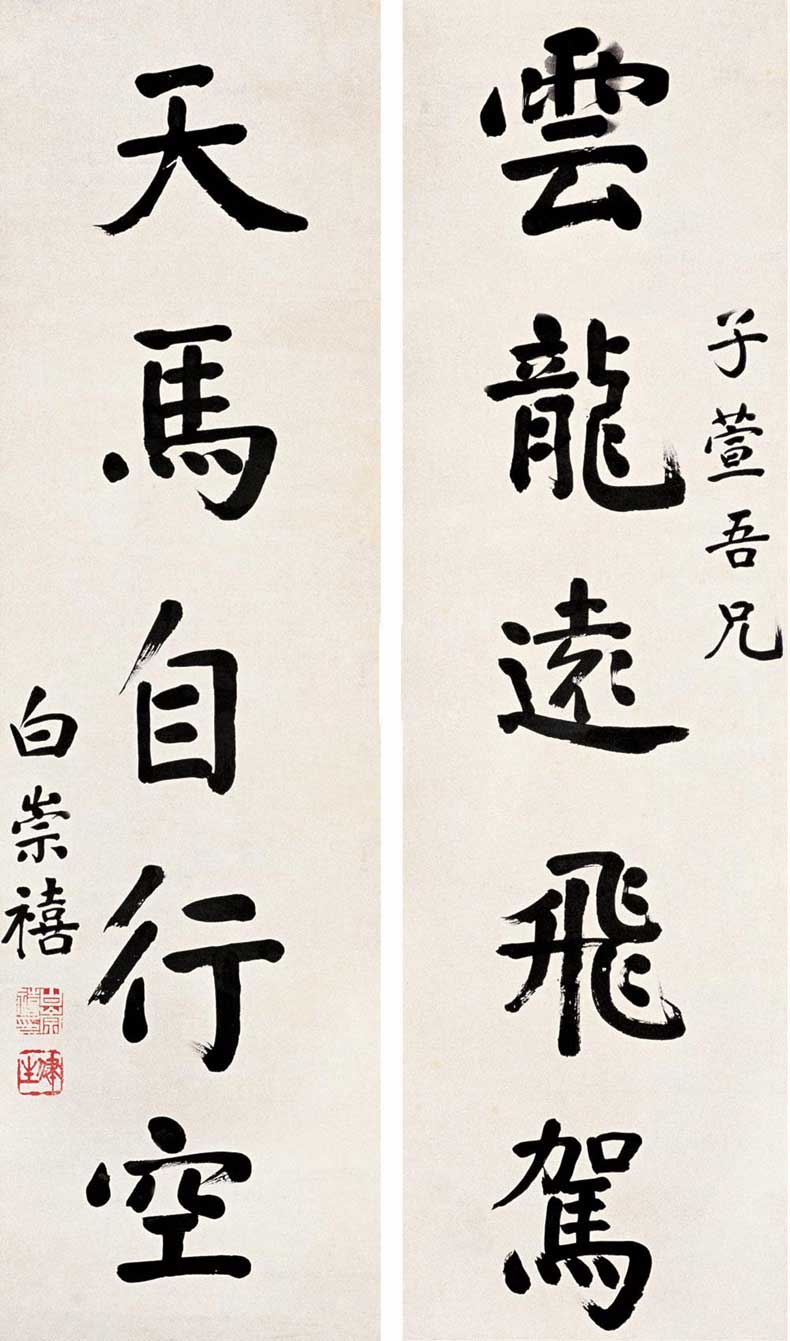 子萱吾兄
雲龍遠飛駕
天馬自行空
白崇禧
健生